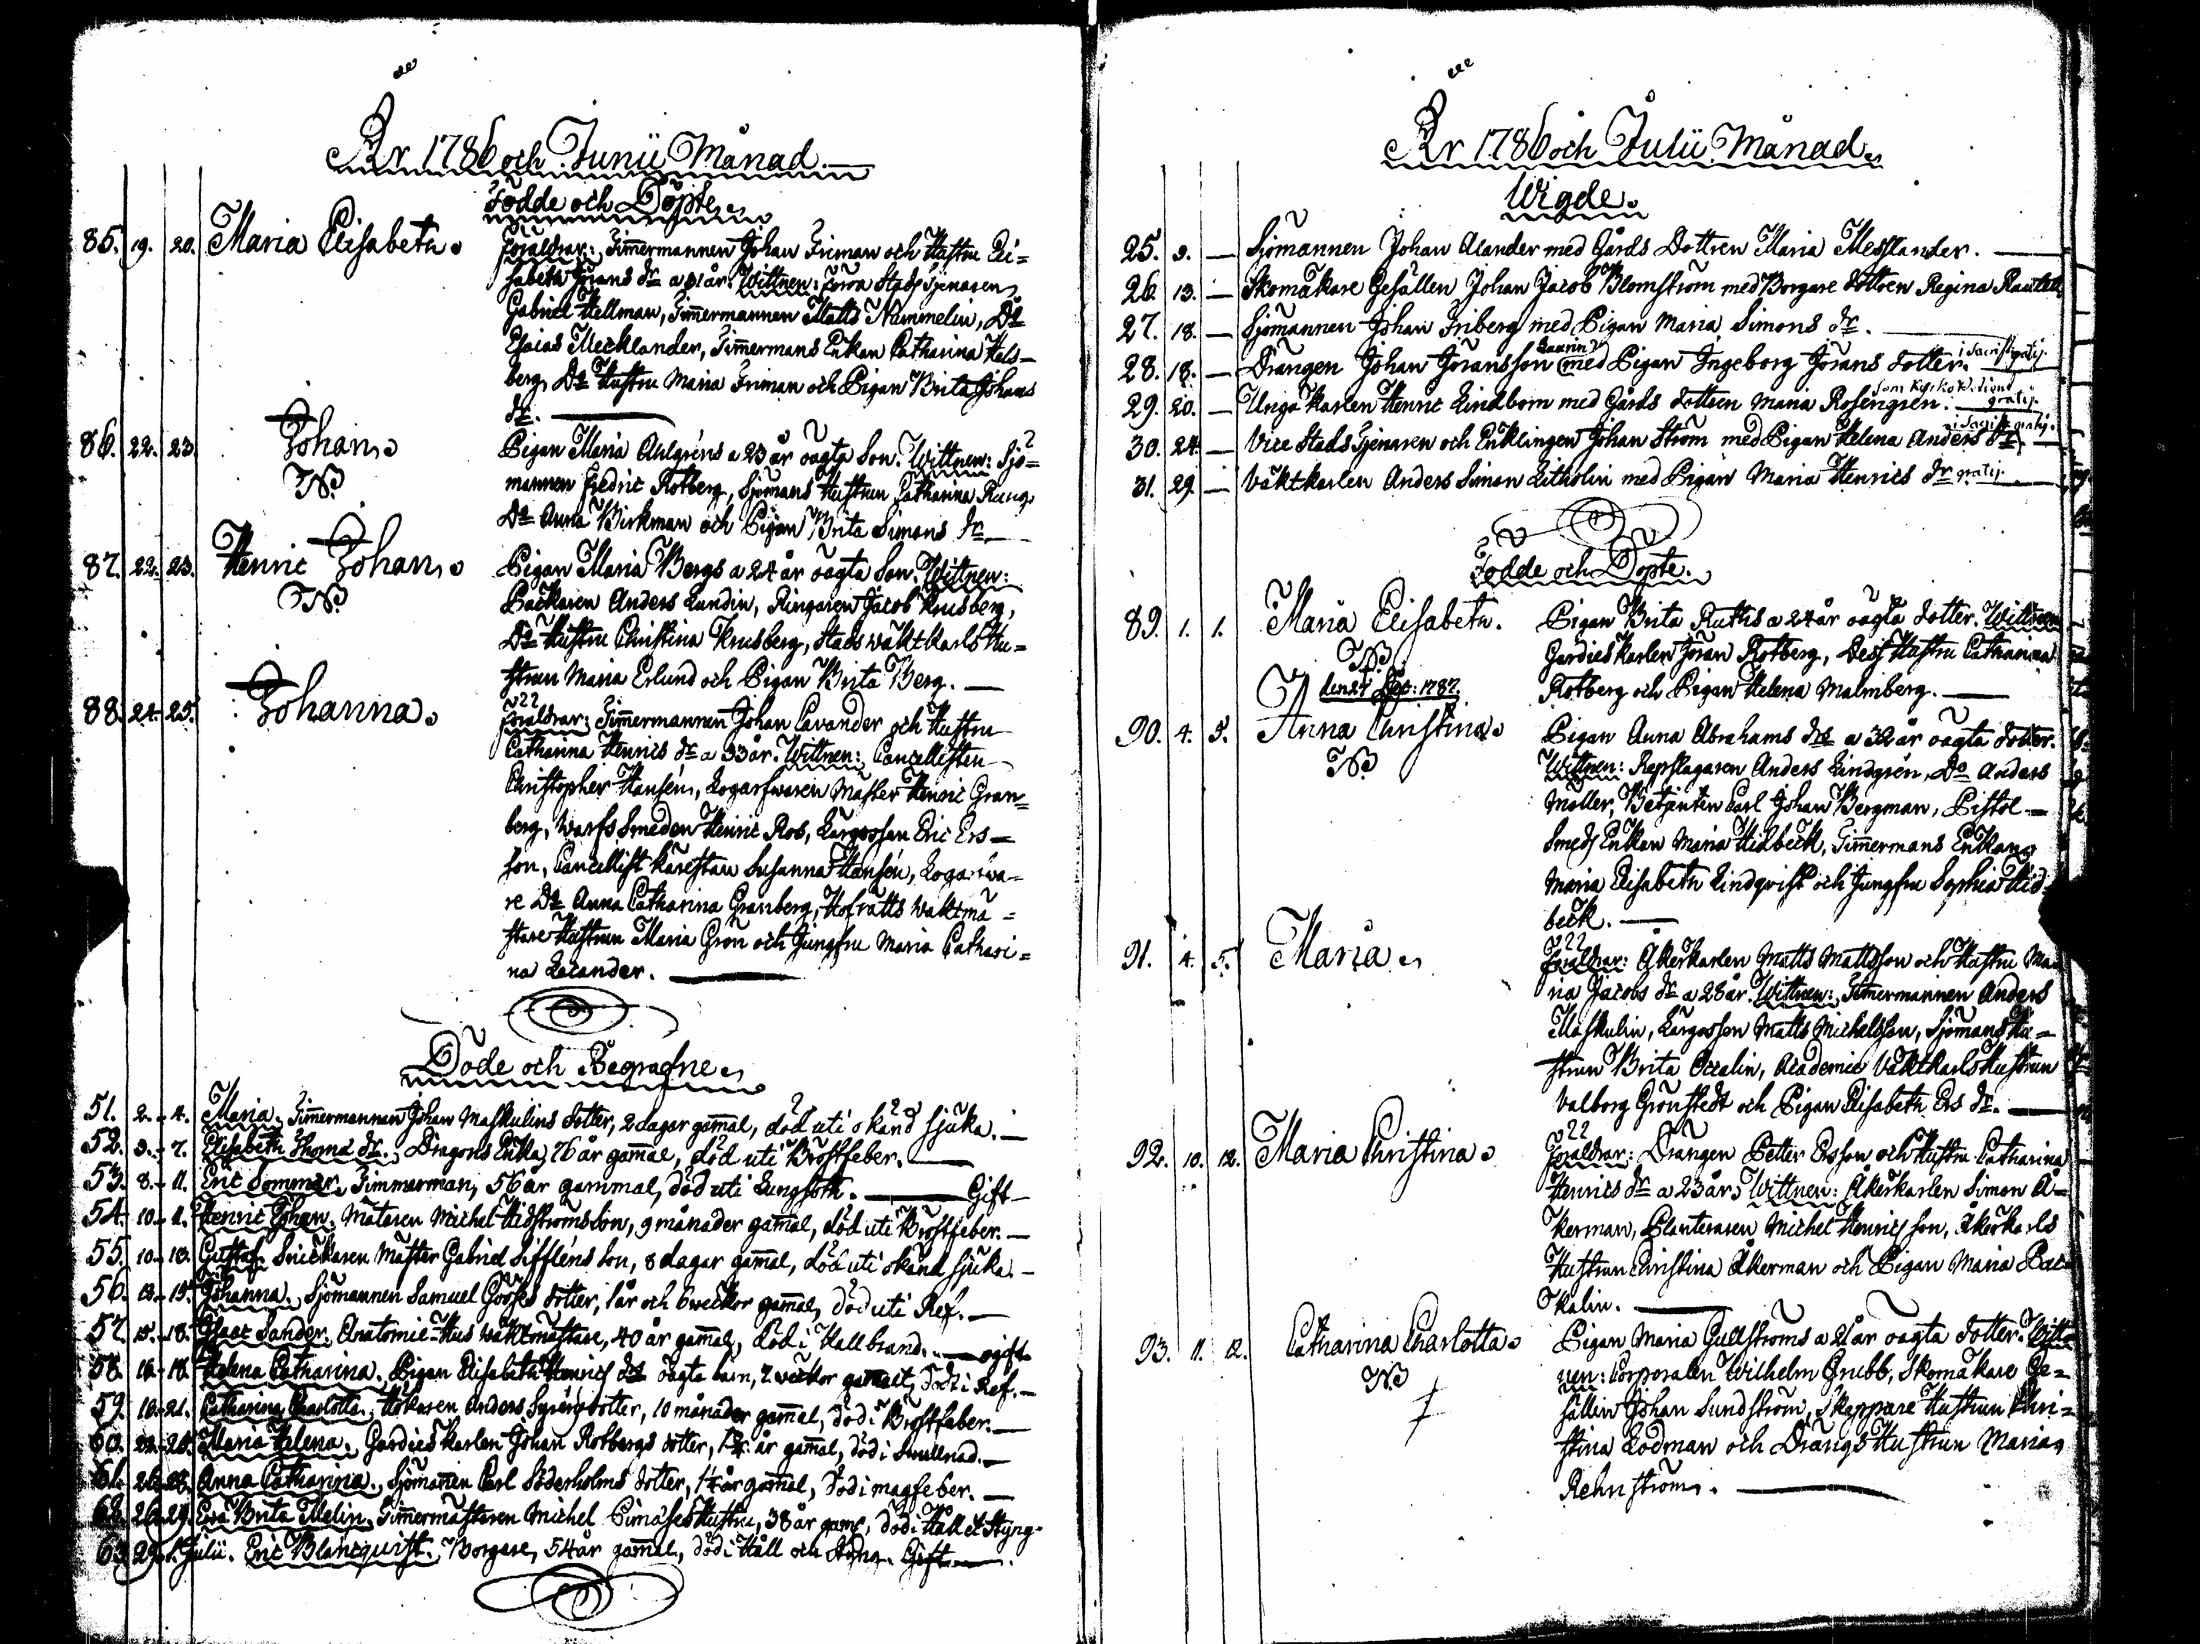 År 1786 och Junii Månad.
Födde och Döpte.
85. 19. 20. Maria Elisabeth. Föräldrar: Timmermannen Johan Friman och Hustru Eli=
sabeth Jörans dr a 31 år. Wittnen: Förra Stads Tjenaren
Gabriel Hellman, Timmermannen Matts Nummelin, Do
Esaias Mecklander, Timmermans Enkan Catharina Hals-
berg, Do Hustru Maria Friman och Pigan Brita Johans
dr.
86. 22. 23. Johan. Pigan Maria Ahlgréns a 23 år oägta Son. Wittnen: Sjö=
No mannen Fredric Rotberg, Sjömans Hustrun Catharina Rung,
Do Anna Birkman och Pigan Brita Simons dr.
87. 22. 23. Henric Johan. Pigan Maria Bergs a 24 år oägta Son. Wittnen:
No Backaren Anders Lundin, Ringaren Jacob Krusberg,
Do Hustru Christina Krusberg, Stads wäktkarls Hu=
strun Maria Erlund och Pigan Brita Berg.
88. 24. 25. Johanna. Föräldrar: Timmermannen Johan Cavander och Hustru
Catharina Henrics dr a 33 år. Wittnen: Cancellisten
Christopher Hansén, Logarfwaren Mäster Henric Gran=
berg, Warfs Smeden Henric Ros, Bergossen Eric Ers-
son, Cancellist kärestan Susanna Hansén, Logarwa=
re Do Anna Catharina Granberg, Hofrätts Waktmä=
stare Hustrun Maria Grön och Jungfru Maria Cathari=
na Lacander.
Döde och Begrafne.
51. 2. 4. Maria. Timmermannen Johan Maskulins dotter, 2 dagar gammal, död uti okänd sjuka.
52. 3. 7. Elisabeth Thomæ dr. Dragons Enka, 76 år gammal, död uti Bröstfeber.
53. 8. 11. Eric Sommar. Timmerman, 56 år gammal, död uti Lungsoth. Gift
54. 10. 11. Henric Johan. Mätaren Michel Hidströms Son, 9 månader gammal, död uti Bröstfeber.
55. 10. 13. Gustaf. Snickaren Mäster Gabriel Sifléns Son, 8 dagar gammal, död uti okänd sjuka.
56. 13. 15. Johanna. Sjömannen Samuel Göös dotter, 1 år och 6 weckor gammal, död uti Ref.
57. 15. 18. Isaac Sander. Anatomie-Hus waktmästare, 40 år gammal, död i Kallbrand. ogift
58. 16. 18. Helena Catharina. Pigan Elisabeth Henrics drs oägta barn, 2 weckor gammalt, död i Ref.
59. 18. 21. Catharina Charlotta. Hökaren Anders Syréns dotter, 10 månader gammal, död i Bröstfeber.
60. Maria Helena. Gardies karlen Johan Rotbergs dotter, år gammal, död i Swullnad.
61. 26. 28. Anna Catharina. Sjömannen Carl Söderholms dotter, år gammal, död i magfeber.
62. 26. 29. Ewa Brita Melin. Timmermästaren Michel Hustru, 38 år gaml, död i Håll et Styng.
63. 29. 1. Julii. Eric Blancquist. Borgare, 54 år gammal, död i Håll och Styng. Gift
År 1786 och Julii Månad.
Wigde.
25. 9. Sjömannen Johan Alander med Gårds Dottren Maria Messlander.
26. 13. Skomakare Gesällen Johan Jacob Blomström med Borgare dottren Regina
27. 18. Sjömannen Johan Friberg med Pigan Maria Simons dr.
28. 18. Drängen Johan Jöransson Laurin med Pigan Ingeborg Jörans dotter. i Sacrist. gratis.
29. 20. Unga karlen Henric Lindbom med Gårds dottren Maria Roséngrén. gratis.
30. 24. Vice Stads Tjenaren och Enklingen Johan Ström med Pigan Helena Anders dr. i Sacrist. gratis.
31. 29. Väktkarlen Anders Simon Litholin med Pigan Maria Henrics dr gratis.
Födde och Döpte.
89. 1. 1. Maria Elisabeth. Pigan Brita Ruths a 24 år oägta dotter. Wittnen
No Gardies karlen Jöran Rotberg, Dess Hustru Catharina
den 24 Sept: 1787. Rotberg och Pigan Helena Malmberg.
90. 4. 5. Anna Christina. Pigan Anna Abrahams drs a 32 år oägta dotter.
No Wittnen: Repslagaren Anders Lindgrén, Do Anders
Möller, Betjänten Carl Johan Bergman, Pistol-
Smeds Enkan Maria Hidbeck, Timmermans Enkan
Maria Elisabeth Lindqvist och Jungfru Sophia Hid-
beck.
91. 4. 5. Maria. Föräldrar: Åkerkarlen Matts Mattsson och Hustru Ma
ria Jacobs dr a 28 år. Wittnen: Timmermannen Anders
Maskulin, Bergossen Matts Michelsson, Sjömans Hu=
strun Brita Ocralin, Academie Väktkarls Hustrun
Valborg Grönstedt och Pigan Elisabeth Ers dr.
92. 10. 12. Maria Christina. Föräldrar: Drängen Petter Ersson och Hustru Catharina
Henrics dr a 23 år. Wittnen: Åkerkarlen Simon Å=
kerman, Planteraren Michel Henricsson, Åkerkarls
Hustrun Christina Åkerman och Pigan Maria Pac=
kalin.
93. 11. 12. Catharina Charlotta. Pigan Maria Gullströms a 21 år oägta dotter. Witt=
No nen: Corporalen Wilhelm Grubb, Skomakare Ge=
sällen Johan Sundström, Skeppare Hustrun Chri=
stina Lodman och Drängs Hustrun Maria
Rehnström.